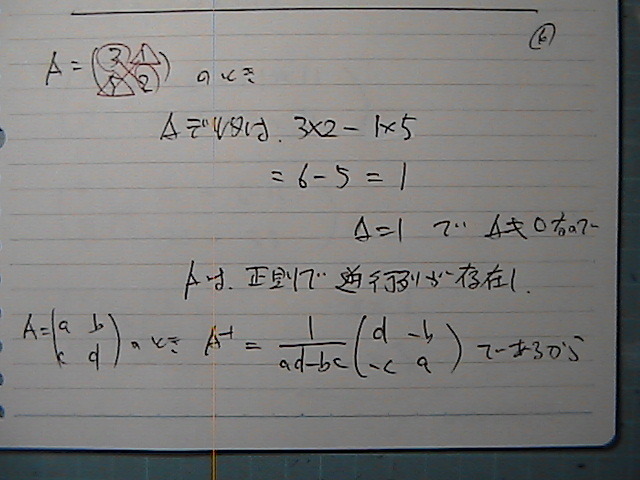 ⑥
A = (3 1 5 2) のとき
Δでいけば、3×2 − 1×5
= 6 − 5 = 1
Δ=1 で Δ≠0なので
Aは、正則で逆行列が存在し、
A = (a b c d) のとき A⁻¹ = 1/(ad−bc) (d −b −c a) であるから